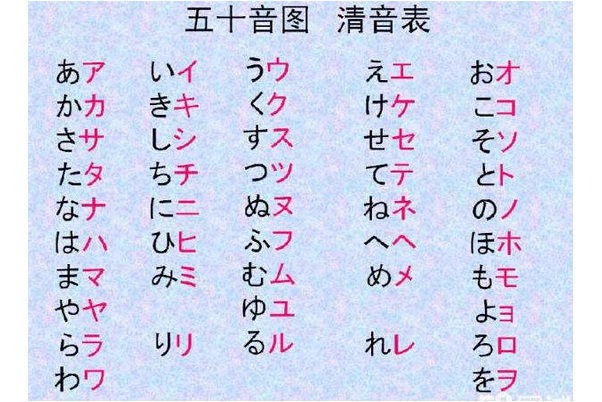 五十音图 清音表
あア いイ うウ えエ おオ
かカ きキ くク けケ こコ
さサ しシ すス せセ そソ
たタ ちチ つツ てテ とト
なナ にニ ぬヌ ねネ のノ
はハ ひヒ ふフ へヘ ほホ
まマ みミ むム めメ もモ
やヤ ゆユ よョ
らラ りリ るル れレ ろロ
わワ をヲ